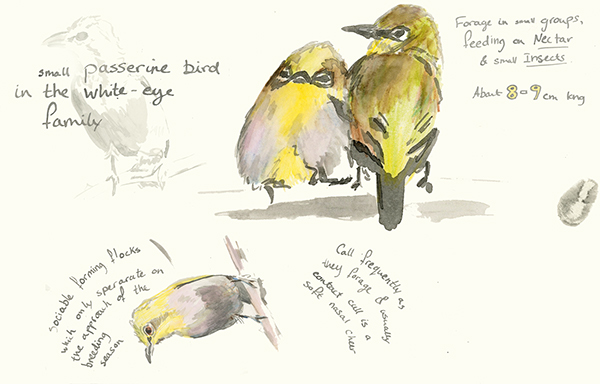 small passerine bird
in the white-eye
family
Forage in small groups,
feeding on Nectar
& small Insects.
About 8-9 cm long
Sociable forming flocks
which only sperarate on
the approach of the
breeding
season
Call frequently as
they forage & usually
contact call is a
soft nasal cheer